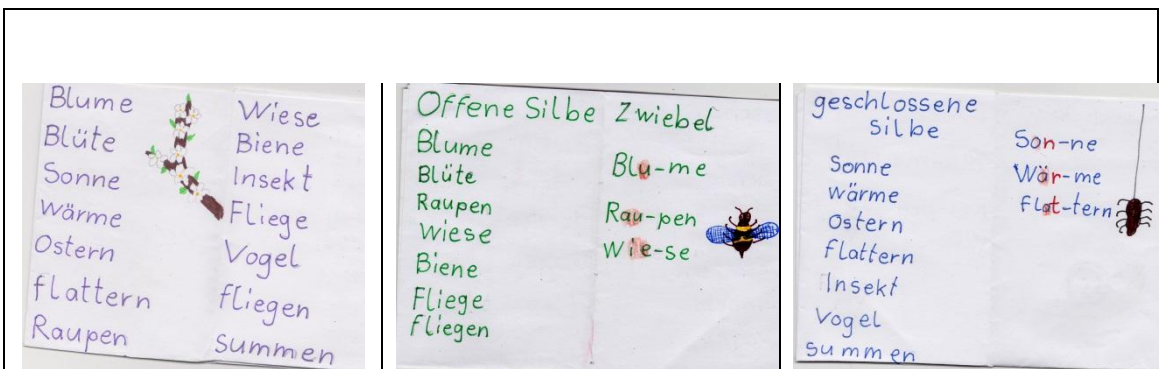 Blume
Blüte
Sonne
Wärme
Ostern
flattern
Raupen
Wiese
Biene
Insekt
Fliege
Vogel
fliegen
summen
Offene Silbe
Blume
Blüte
Raupen
Wiese
Biene
Fliege
fliegen
Zwiebel
Blu-me
Rau-pen
Wie-se
geschlossene
Silbe
Sonne
Wärme
Ostern
flattern
Insekt
Vogel
summen
Son-ne
Wär-me
flat-tern